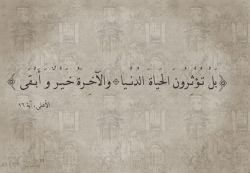 ﴿بل تؤثرون الحياة الدنيا ۞ والآخرة خير و أبقى﴾
الأعلى، آية ١٦